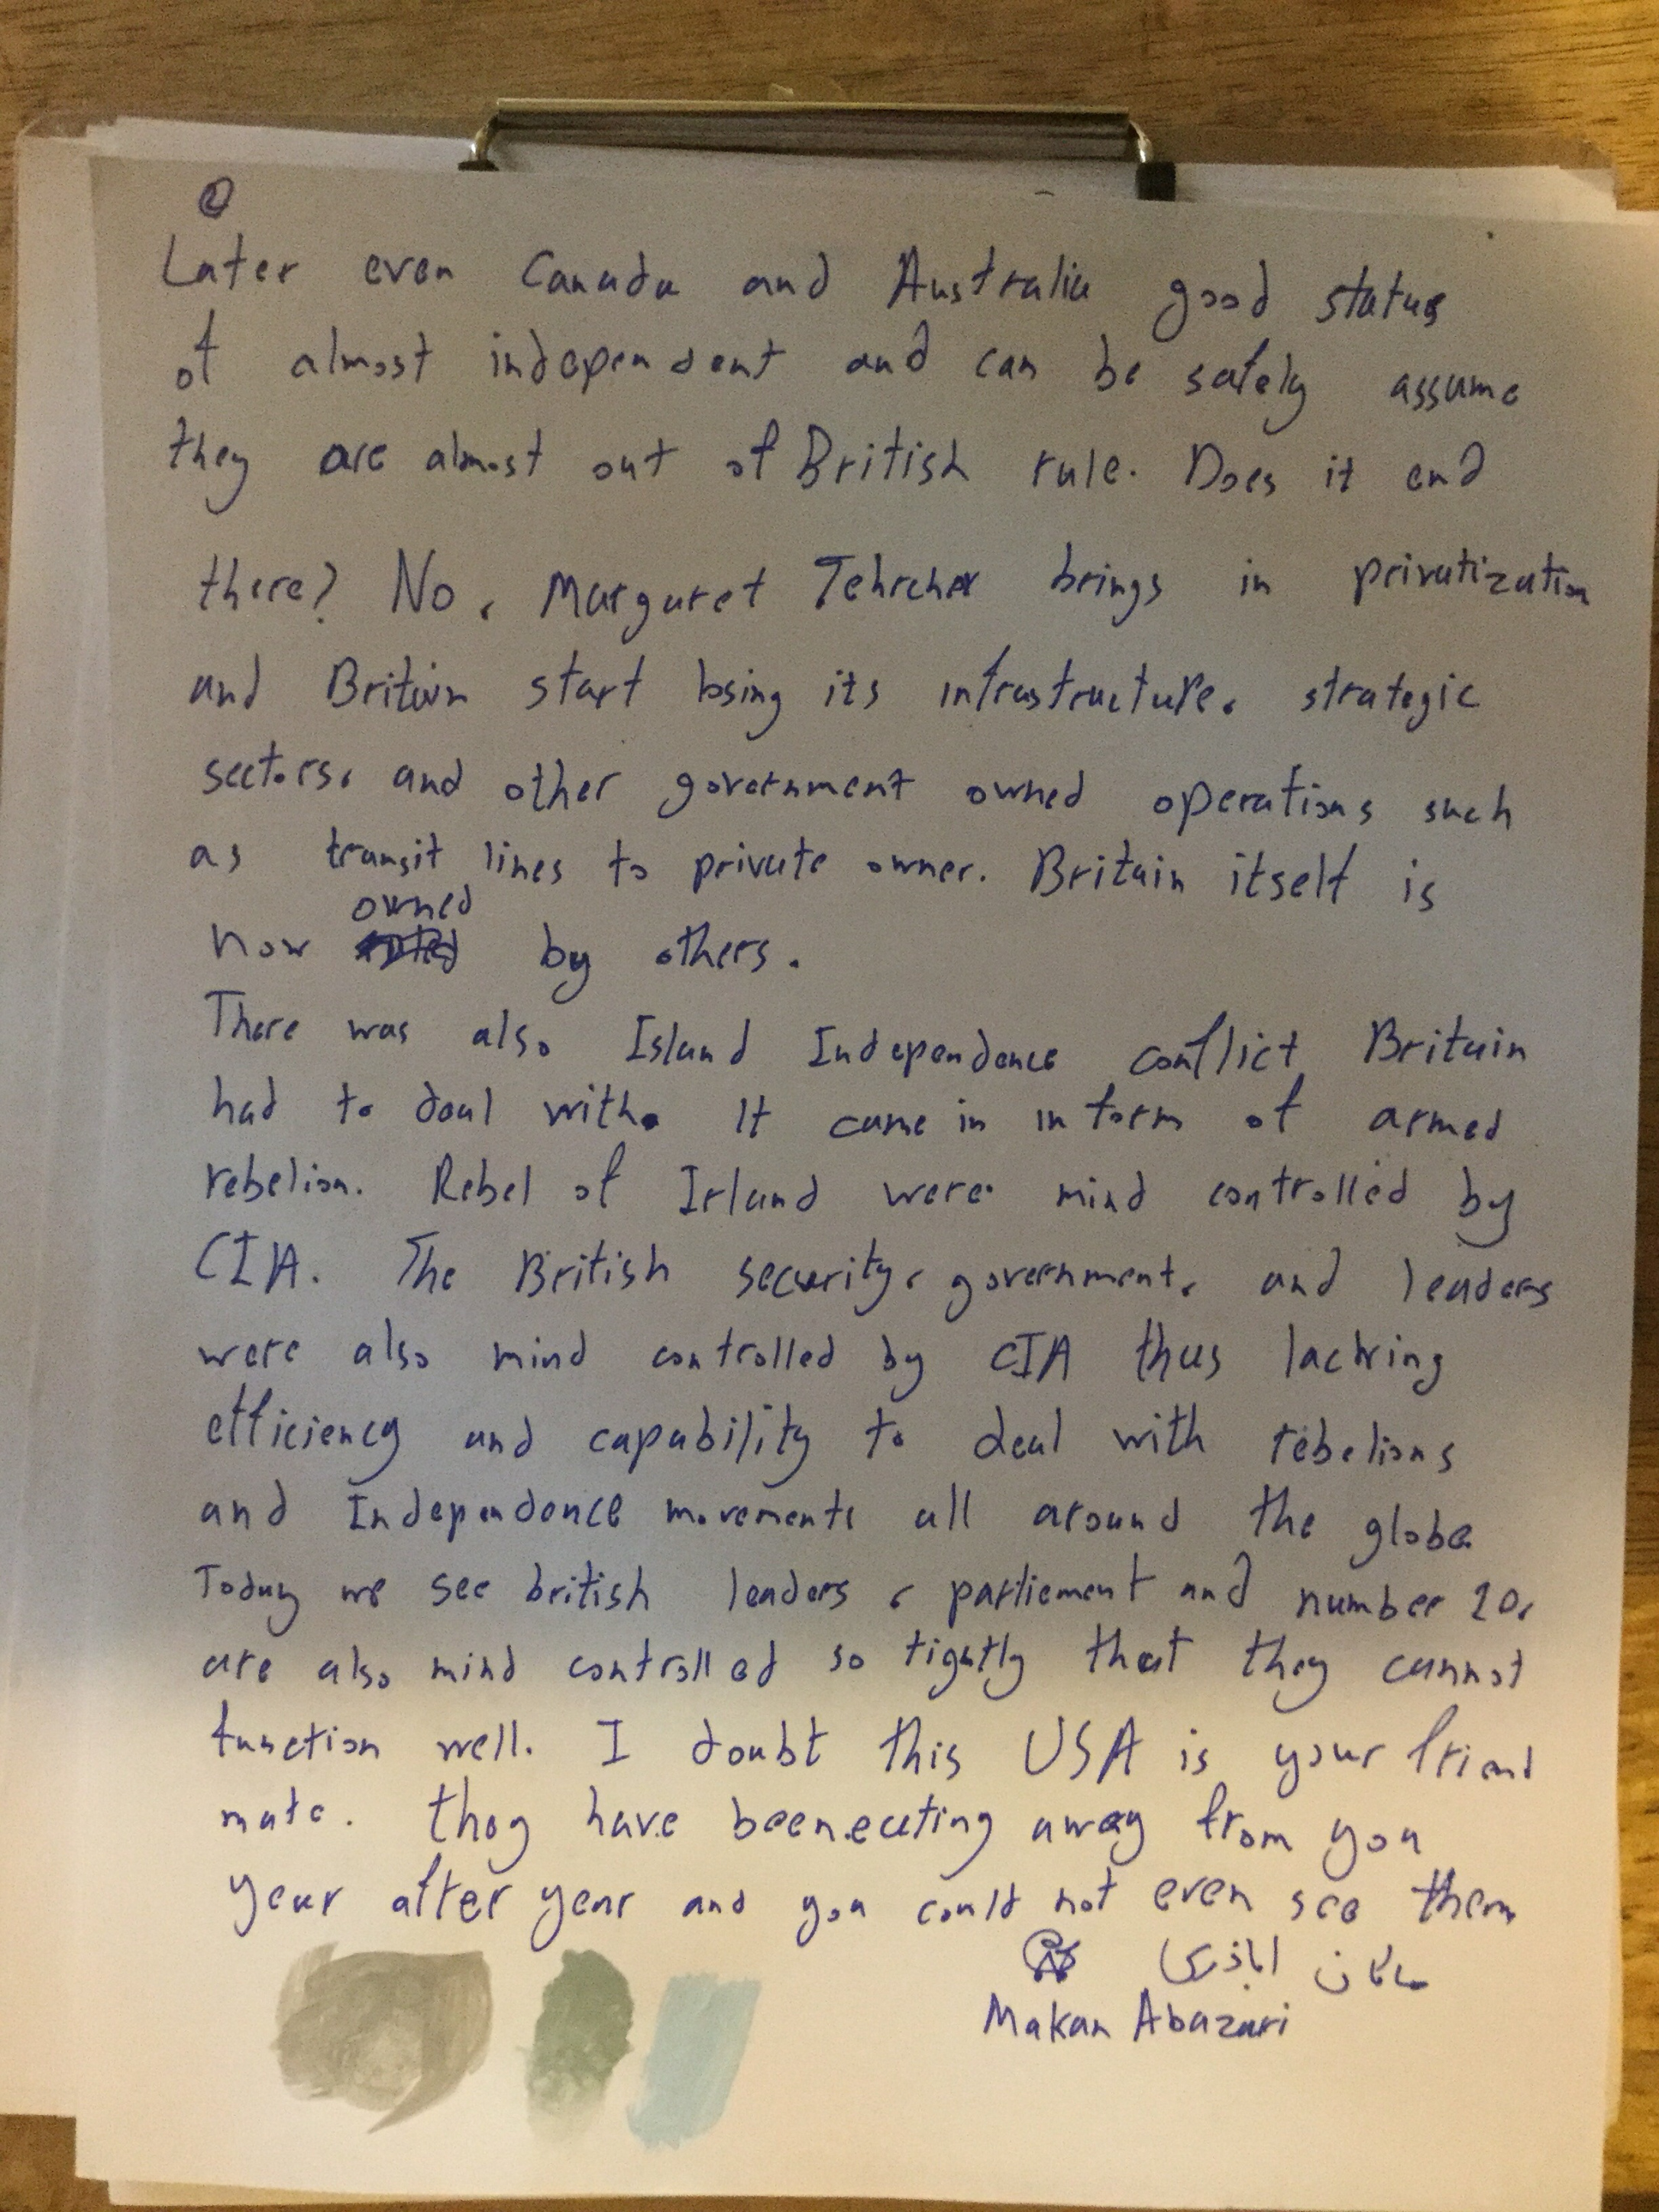 ②
Later even Canada and Australia good status
of almost independent and can be safely assume
they are almost out of British rule. Does it end
there? No, Margaret Tehrcher brings in privatization
and Britain start losing its infrastructure, strategic
sectors, and other government owned operations such
as transit lines to private owner. Britain itself is
now owned by others.
There was also Island Independence conflict Britain
had to deal with. It came in in form of armed
rebelion. Rebel of Irland were mind controlled by
CIA. The British security, government, and leaders
were also mind controlled by CIA thus lacking
efficiency and capability to deal with rebelions
and Independence movements all around the globe.
Today we see british leaders, parliement and number 10,
are also mind controlled so tightly that they cannot
function well. I doubt this USA is your friend
mate. they have been eating away from you
year after year and you could not even see them
ماکان اباذری
Makan Abazari